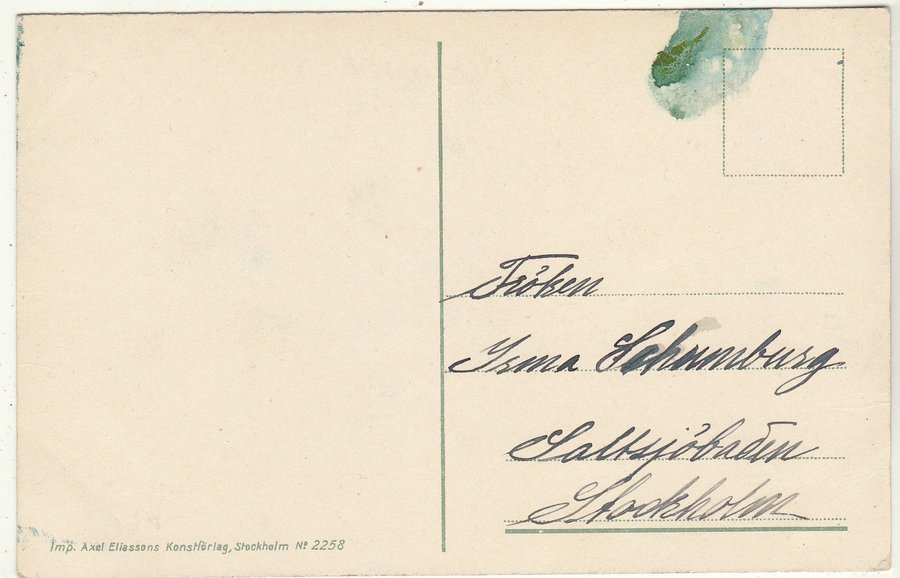 Fröken
Irma Schumburg
Saltsjöbaden
Stockholm
Imp. Axel Eliassons Konstförlag, Stockholm Nº 2258